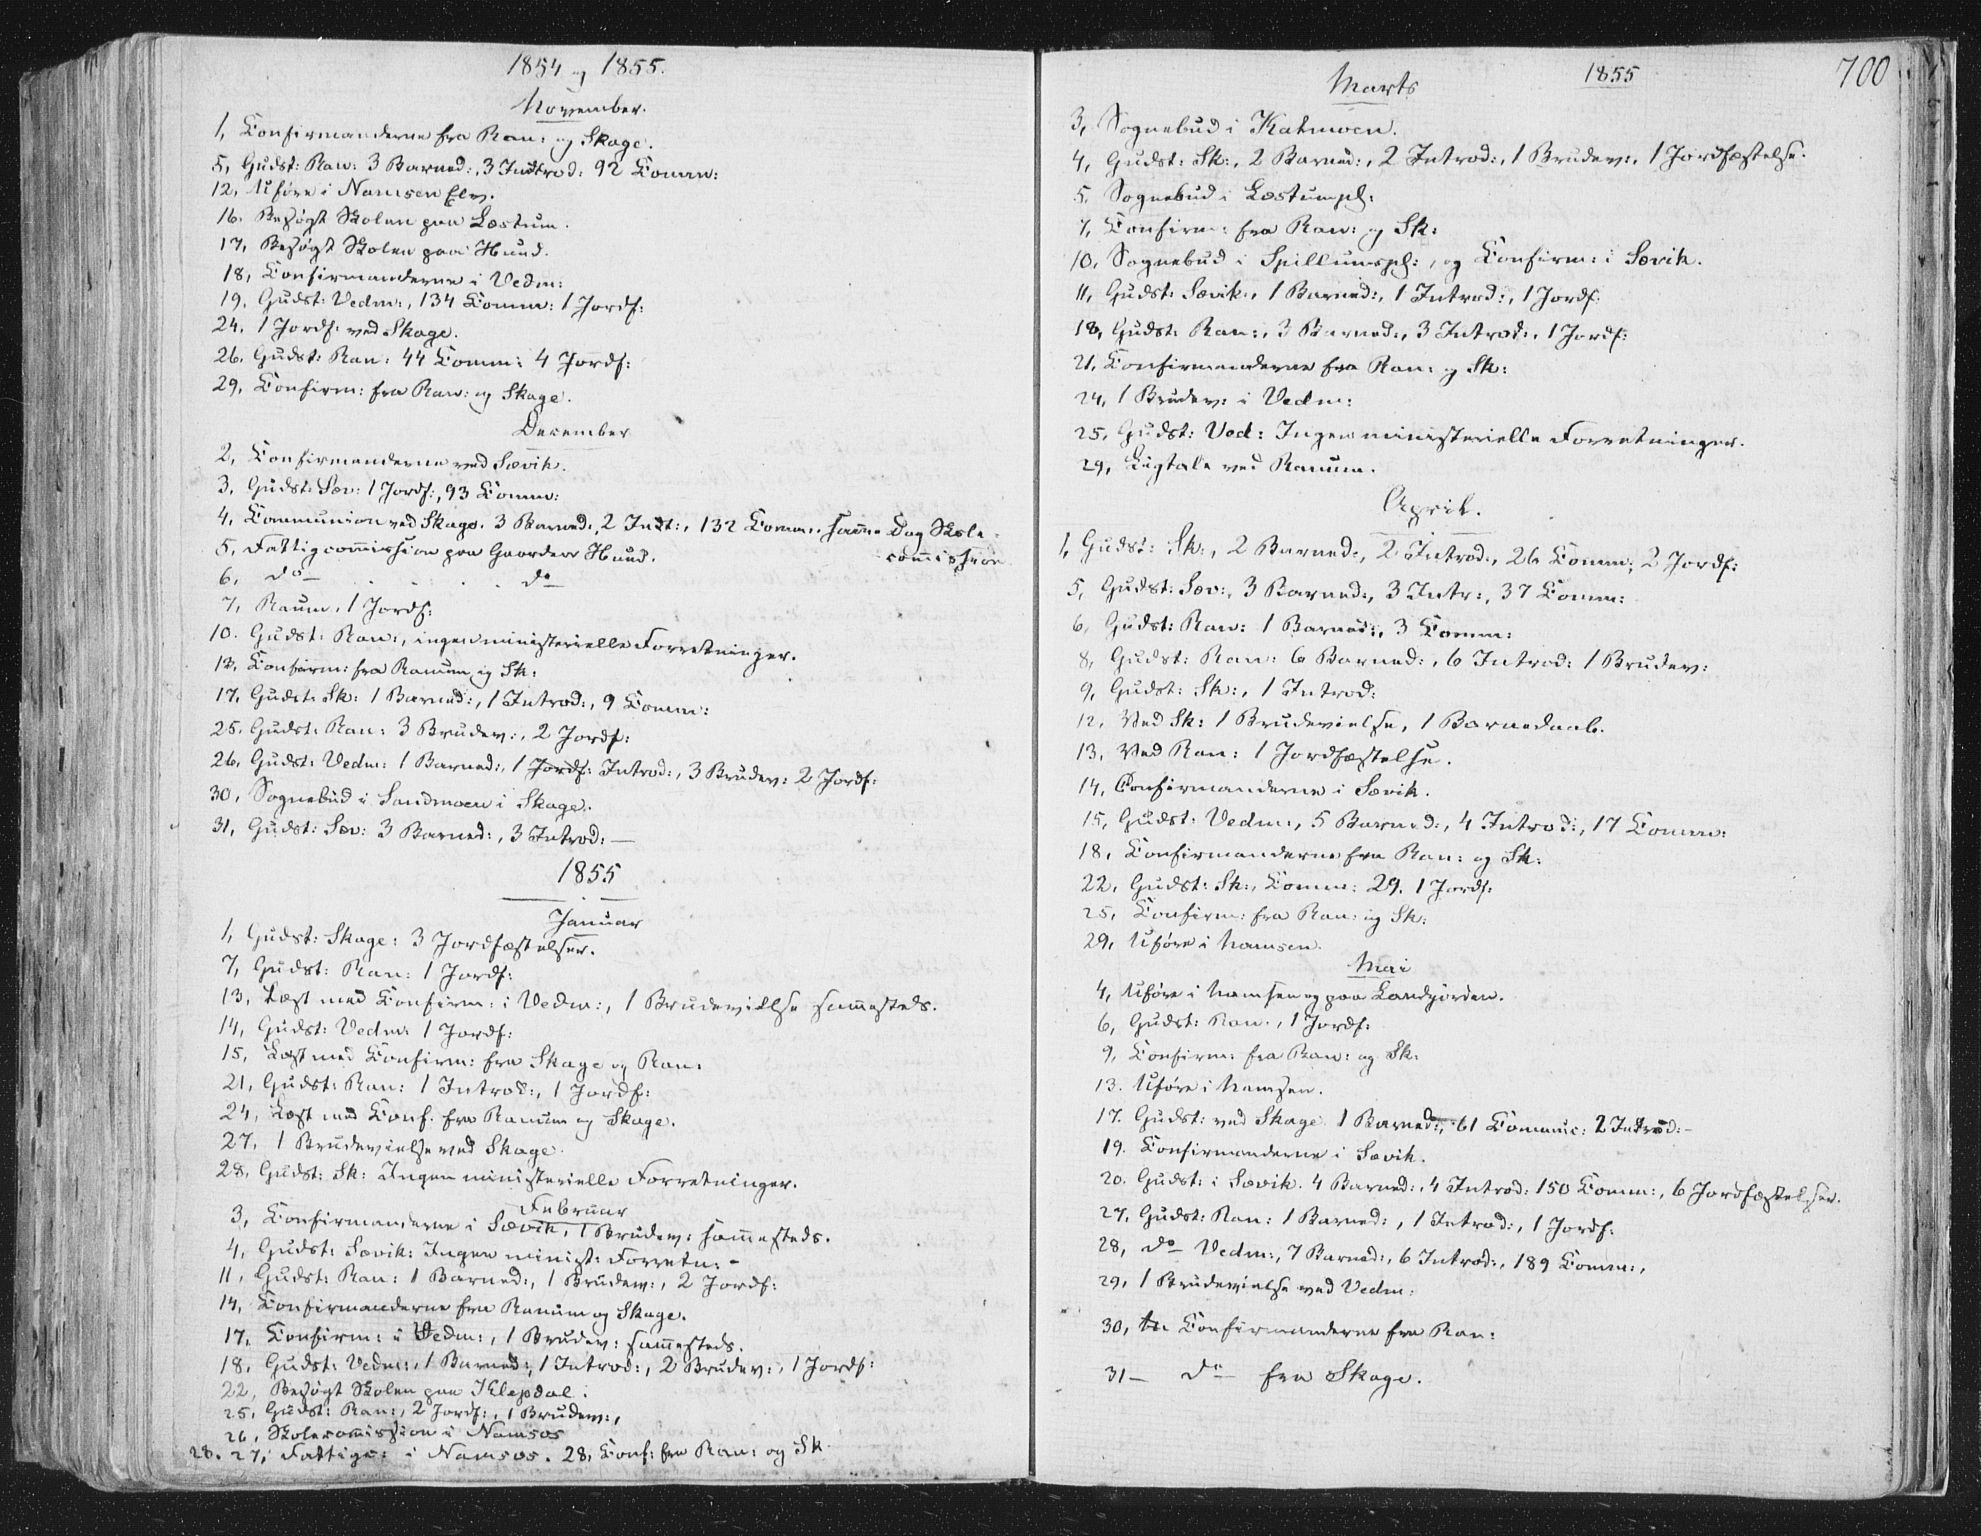 1854 og 1855.
November.
1, Confirmanderne fra Ran: og Skage.
5, Gudst: Ran: 3 Barned:, 3 Introd: 92 Comm:
12, Uføre i Namsen Elv.
16. Besøgt Skolen paa Lostum.
17, Besøgt Skolen paa Hund.
18, Confirmanderne i Vedm:
19, Gudst: Vedm:, 134 Comm: 1 Jordf:
24. 1 Jordf: ved Skage.
26. Gudst: Ran: 44 Comm: 4 Jordf:
29, Confirm: fra Ran: og Skage.
December
2, Confirmanderne ved Sævik.
3, Gudst: Sæv: 1 Jordf:, 93 Comm:
4, Communion ved Skage. 3 Barned:, 2 Int:, 132 Comm:. samme Dag Skole-
commission
5, Fattigcommission paa Gaarden Hund.
6, do do
7, Ranum, 1 Jordf:
10. Gudst: Ran:, ingen ministerielle Forretninger.
13. Confirm: fra Ranum og Sk:
17, Gudst: Sk: 1 Barned:, 1 Introd:, 9 Comm:
25. Gudst: Ran: 3 Brudev:, 2 Jordf:
26, Gudst: Vedm: 1 Barned:, 1 Jordf: Introd:, 3 Brudev: 2 Jordf:
30, Sognebud i Sandmoen i Skage.
31, Gudst: Sæv: 3 Barned:, 3 Introd: —
1855
Januar
1, Gudst: Skage: 3 Jordfæstelser.
7, Gudst: Ran: 1 Jordf:
13, Læst med Confirm: i Vedm:, 1 Brudevielse sammesteds.
14, Gudst: Vedm: 1 Jordf:
15, Læst med Confirm: fra Skage og Ran:
21, Gudst: Ran: 1 Introd:, 1 Jordf:
24, Læst med Conf: fra Ranum og Skage.
27, 1 Brudevielse ved Skage.
28, Gudst: Sk: Ingen ministerielle Forretninger.
Februar
3, Confirmanderne i Sævik, 1 Brudev: sammesteds.
4, Gudst: Sævik: Ingen minist: Forretn: -
11, Gudst: Ran: 1 Barned:, 1 Brudev:, 2 Jordf:
14, Confirmanderne fra Ranum og Skage.
17, Confirm: i Vedm:, 1 Brudev: sammesteds.
18, Gudst: Vedm:, 1 Barned:, 1 Introd:, 2 Brudev:, 1 Jordf:
22, Besøgt Skolen paa Klepdal.
25, Gudst: Ran:, 2 Jordf:, 1 Brudev:,
26, Skolecommission i Namsos
28. 27, Fattigc: i Namsos. 28, Conf: fra Ran: og Sk
1855
700
Marts
3, Sognebud i Katmoen.
4, Gudst: Sk:, 2 Barned:, 2 Introd:, 1 Brudev:, 1 Jordfæstelse.
5, Sognebud i Lostumpl:
7, Confirm: fra Ran: og Sk:
10, Sognebud i Spillumspl:, og Confirm: i Sævik.
11, Gudst: Sævik:, 1 Barned:, 1 Introd:, 1 Jordf:
18, Gudst: Ran:, 3 Barned:, 3 Introd:, 1 Jordf:
21, Confirmanderne fra Ran: og Sk:
24, 1 Brudev: i Vedm:
25, Gudst: Ved: Ingen ministerielle Forretninger.
29, Ligtale ved Ranum.
April.
1, Gudst: Sk:, 2 Barned:, 2 Introd:, 26 Comm: 2 Jordf:
5, Gudst: Sæv:, 3 Barned:, 3 Intr:, 37 Comm:
6, Gudst: Ran: 1 Barned:, 3 Comm:
8, Gudst: Ran: 6 Barned:, 6 Introd: 1 Brudev:
9, Gudst: Sk:, 1 Introd:
12, Ved Sk: 1 Brudevielse, 1 Barnedaab.
13, Ved Ran: 1 Jordfæstelse.
14, Confirmanderne i Sævik.
15, Gudst: Vedm:, 5 Barned:, 4 Introd:, 17 Comm:
18, Confirmanderne fra Ran: og Sk:
22, Gudst: Sk:, Comm: 29. 1 Jordf:
25, Confirm: fra Ran: og Sk:
29, Uføre i Namsen.
Mai
4, Uføre i Namsen og paa Landjorden.
6, Gudst: Ran:, 1 Jordf:
9, Confirm: fra Ran: og Sk:
13. Uføre i Namsen.
17. Gudst: ved Skage. 1 Barned:, 61 Communic: 2 Introd:-
19. Confirmanderne i Sævik.
20. Gudst: i Sævik. 4 Barned:, 4 Introd: 150 Comm:, 6 Jordfæstelser.
27, Gudst: Ran: 1 Barned:, 1 Introd:, 1 Jordf:
28, do Vedm:, 7 Barned:, 6 Introd:, 189 Comm:,
29, 1 Brudevielse ved Vedm:
30, Confirmanderne fra Ran:
31— do fra Skage.